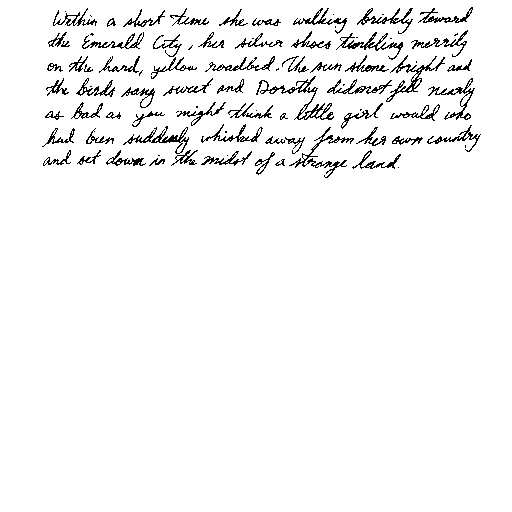 Within a short time she was walking briskly toward
the Emerald City, her silver shoes tinkling merrily
on the hard, yellow roadbed. The sun shone bright and
the birds sang sweet and Dorothy did not fell nearly
as bad as you might think a little girl would who
had been suddenly whisked away from her own country
and set down in the midst of a strange land.